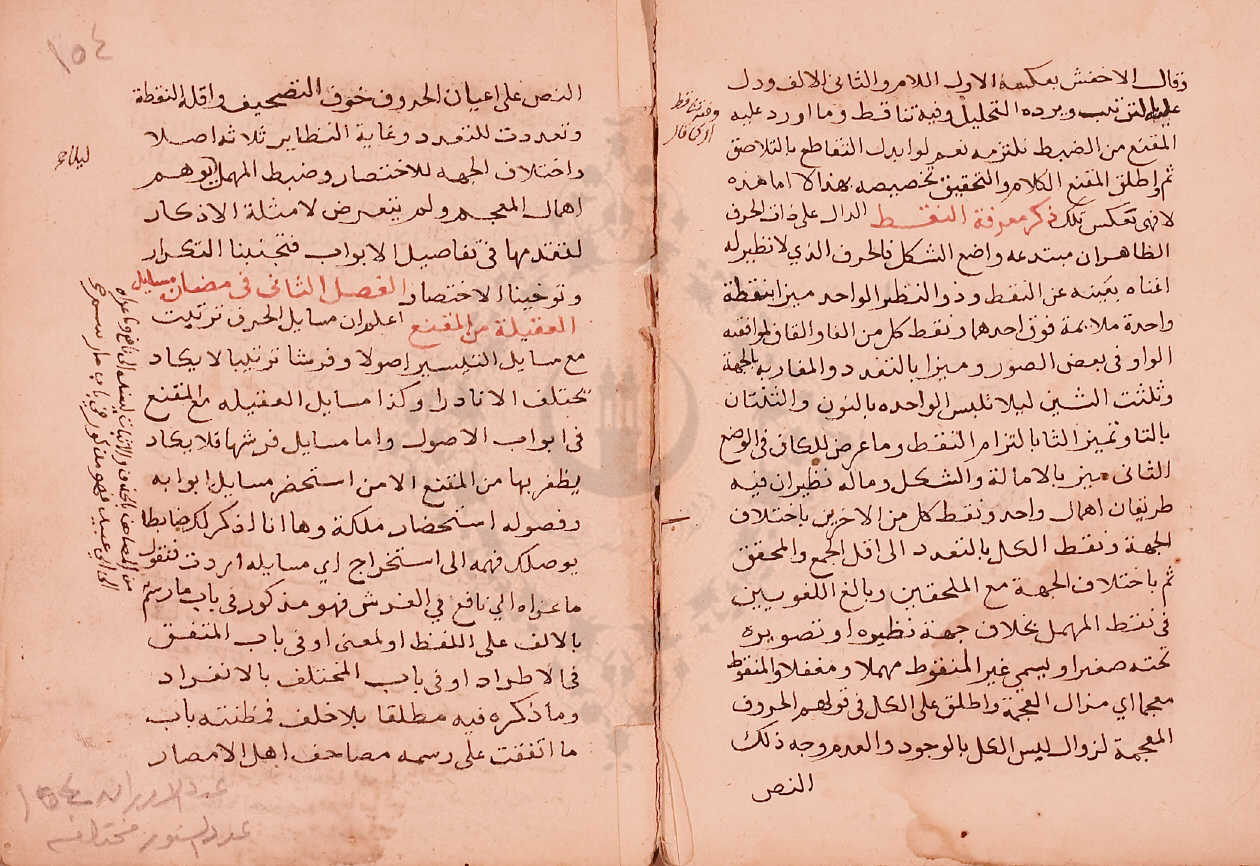 وقال الاخفش بعكسه الاول اللام والثاني الالف ودل
عليه الترتيب ويرده التحليل وفيه تناقط وما اورد عليه
المقنع من الضبط نلتزمه نعم لو ايدك التقاطع بالتلاصق
ثم واطلق المقنع الكلام والتحقيق تخصيصه بهذه لا اما هذه
لانهى تعكس تلك ذكر معرفة النقط الدال على ذات الحرف
الظاهر ان مبتدعه واضع الشكل فالحرف الذي لا نظير له
اغناه بعينه عن النقط وذو النظير الواحد ميزا بنقطة
واحدة ملايمة فوق احدهما ونقط كل من الفا والقاف لموافقته
الواو في بعض الصور وميزا بالتعدد والمغاربه بالجهة
وثلثت الشين ليلا تلبس الواحده بالنون والثنتان
بالتا وتميز الثا بالتزام النقط وما عرض للكاف في الوضع
الثاني ميز بالامالة والشكل وماله نظيران فيه
طريقان اهمال واحد ونقط كل من الاخرين باختلاف
الجهة ونقط الكل بالتعدد الى اقل الجمع والمحقق
ثم باختلاف الجهة مع الملحقين وبالغ اللغويين
في نقط المهمل بخلاف جهة نظيره او تصويره
تحته صغيرا ويسمي غير المنقوط مهملا ومغفلا والمنقوط
معجما اي مزال العجمة واطلق على الكل في قولهم الحروف
المعجمة لزوال لبس الكل بالوجود والعدم وجه ذلك
النص
١٥٤
النص على اعيان الحروف خوف التصحيف واقله النقطة
وتعددت للتعدد وغاية النظاير ثلاثه اصلا
واختلاف الجهه للاختصار وضبط المهمل لتوهم
اهمال المعجم ولم يتعرض لامثلة الاذكار
لتقدمها في تفاصيل الابواب فتجنبنا التكرار
وتوخينا الاختصار الفصل الثاني في مضان مسايل
العقيلة من المقنع اعلم ان مسايل الحرف ترتيب
مع مسايل التيسير اصولا وفرشا ترتيبا لا يكاد
يختلف الا نادرا وكذا مسايل العقيله مع المقنع
في ابواب الاصول واما مسايل فرشها فلا يكاد
يظفر بها من المقنع الا من استحضر مسايل ابوابه
وفصوله استحضار ملكة وها انا اذكر لك ضابطا
يوصلك فهمه الى استخراج اي مسايله اردت فنقول
ما عزاه الي نافع في الفرش فهو مذكور في باب ما رسم
بالالف على اللفظ او لمعنى او في باب المتفق
في الاطراد او في باب المختلف بالانفراد
وما ذكره فيه مطلقا بلا خلف فمظنته باب
ما اتفقت على رسمه مصاحف اهل الامصار